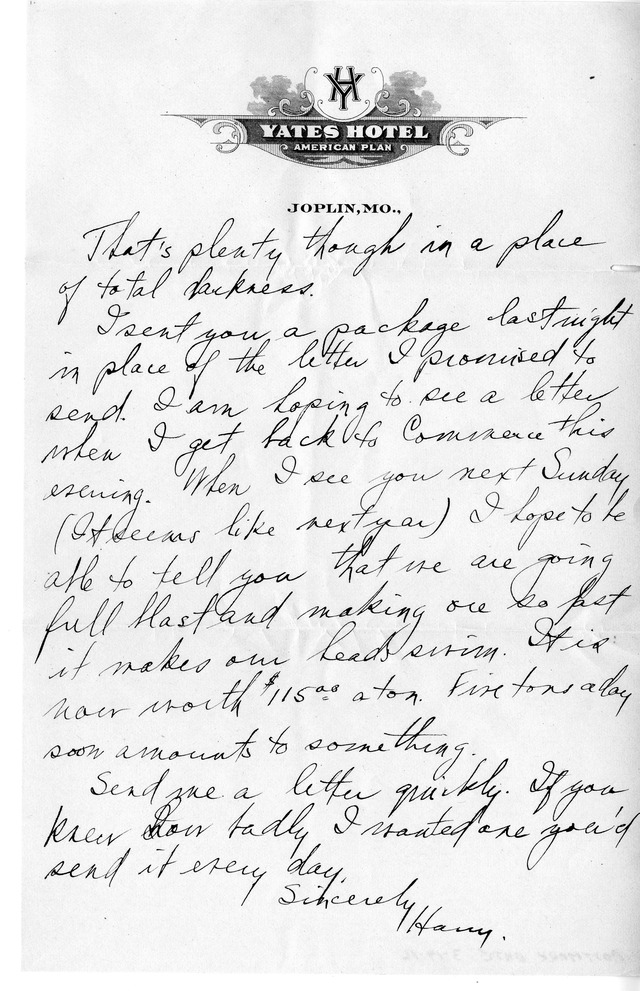 HY
YATES HOTEL
AMERICAN PLAN
JOPLIN, MO.,
That's plenty though in a place
of total darkness.
I sent you a package last night
in place of the letter I promised to
send. I am hoping to see a letter
when I get back to Commerce this
evening. When I see you next Sunday
(It seems like next year) I hope to be
able to tell you that we are going
full blast and making ore so fast
it makes our heads swim. It is
now worth $115 00 a ton. Five tons a day
soon amounts to something.
Send me a letter quickly. If you
knew how badly I wanted one you'd
send it every day.
Sincerely
Harry.